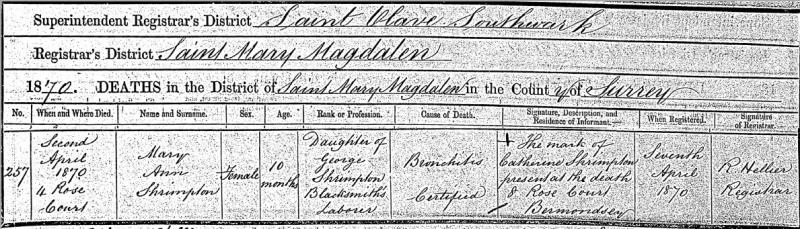 Superintendent Registrar's District Saint Olave Southwark
Registrar's District Saint Mary Magdalen
1870. DEATHS in the District of Saint Mary Magdalen in the County of Surrey
No. When and Where Died. Name and Surname. Sex. Age. Rank or Profession. Cause of Death. Signature, Description, and Residence of Informant. When Registered. Signature of Registrar.
257
Second
April
1870
4 Rose
Court
Mary
Ann
Shrimpton
Female
10
months
Daughter of
George
Shrimpton
Blacksmith's
Laborer
Bronchitis
Certified
The mark of
Catherine Shrimpton
present at the death
8 Rose Court
Bermondsey
Seventh
April
1870
R Hellier
Registrar